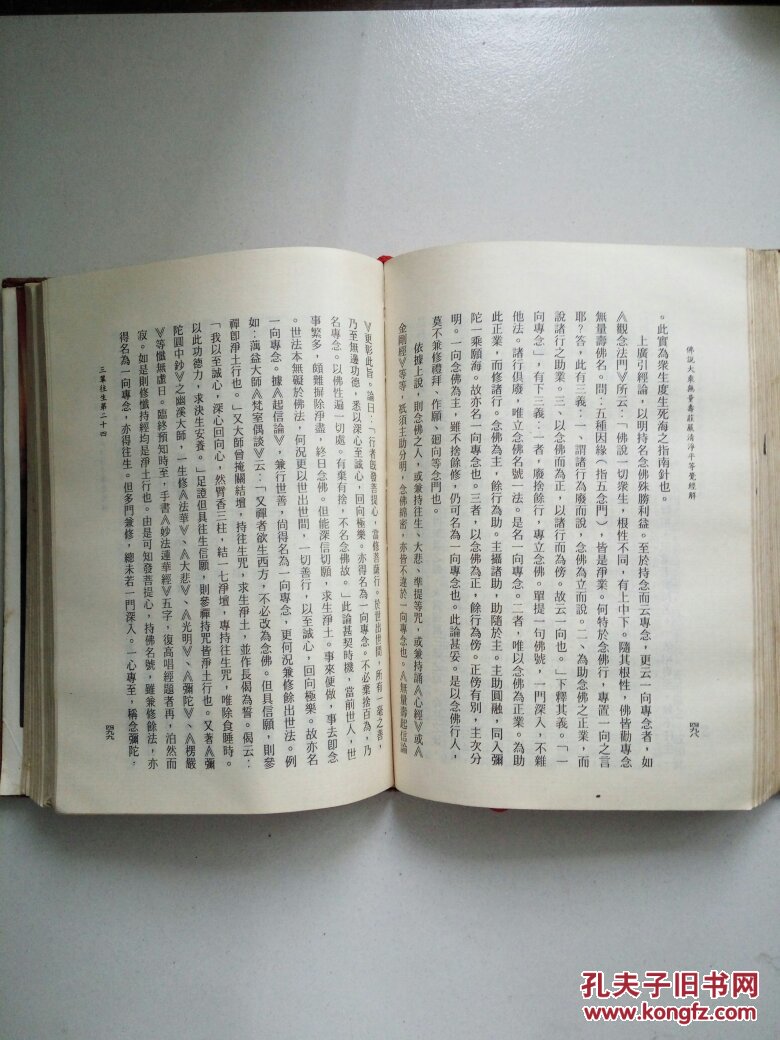 佛說大乘無量壽莊嚴清淨平等覺經解
四九八
。此實為衆生度生死海之指南針也。
上廣引經論，以明持名念佛殊勝利益。至於持念而云專念，更云一向專念者，如
《觀念法門》所云：「佛說一切衆生，根性不同，有上中下。隨其根性，佛皆勸專念
無量壽佛名。問：五種因緣（指五念門），皆是淨業。何特於念佛行，專置一向之言
耶？答，此有三義：一、謂諸行為廢而說，念佛為立而說。二、為助念佛之正業，而
說諸行之助業。三、以念佛而為正，以諸行而為傍。故云一向也。」下釋其義。「一
向專念」，有下三義：一者，廢捨餘行，專立念佛。單提一句佛號，一門深入，不雜
他法。諸行俱廢，唯立念佛名號一法。是名一向專念。二者，唯以念佛為正業。為助
此正業，而修諸行。念佛為主，餘行為助。主攝諸助，助隨於主。主助圓融，同入彌
陀一乘願海。故亦名一向專念也。三者，以念佛為正，餘行為傍。正傍有別，主次分
明。一向念佛為主，雖不捨餘修，仍可名為一向專念也。此論甚妥。是以念佛行人，
莫不兼修禮拜、作願、迴向等念門也。
依據上說，則念佛之人，或兼持往生、大悲、準提等咒，或兼持誦《心經》或《
金剛經》等等，祇須主助分明，念佛綿密，亦皆不違於一向專念也。《無量壽起信論
》更彰此旨。論曰：「行者既發菩提心，當修菩薩行。於世出世間，所有一毫之善，
乃至無邊功德，悉以深心至誠心，回向極樂。亦得名為一向專念。不必棄捨百為，乃
名專念。以佛性遍一切處。有棄有捨，不名念佛故。」此論甚契時機，當前世人，世
事繁多，頗難摒除淨盡，終日念佛。但能深信切願，求生淨土。事來便做，事去卽念
。世法本無礙於佛法，何況更以世出世間，一切善行，以至誠心，回向極樂。故亦名
一向專念。據《起信論》，兼行世善，尚得名為一向專念，更何況兼修餘出世法。例
如：蕅益大師《梵室偶談》云：「又禪者欲生西方，不必改為念佛。但具信願，則參
禪卽淨土行也。」又大師曾掩關結壇，持往生咒，求生淨土，並作長偈為誓。偈云：
「我以至誠心，深心回向心，然臂香三炷，結一七淨壇，專持往生咒，唯除食睡時。
以此功德力，求決生安養。」足證但具往生信願，則參禪持咒皆淨土行也。又著《彌
陀圓中鈔》之幽溪大師，一生修《法華》、《大悲》、《光明》、《彌陀》、《楞嚴
》等懺無虛日。臨終預知時至，手書《妙法蓮華經》五字，復高唱經題者再，泊然而
寂。如是則修懺持經均是淨土行也。由是可知發菩提心，持佛名號，雖兼修餘法，亦
得名為一向專念，亦得往生。但多門兼修，總未若一門深入。一心專至，稱念彌陀。
三輩往生第二十四
四九九
孔夫子旧书网
www.kongfz.com